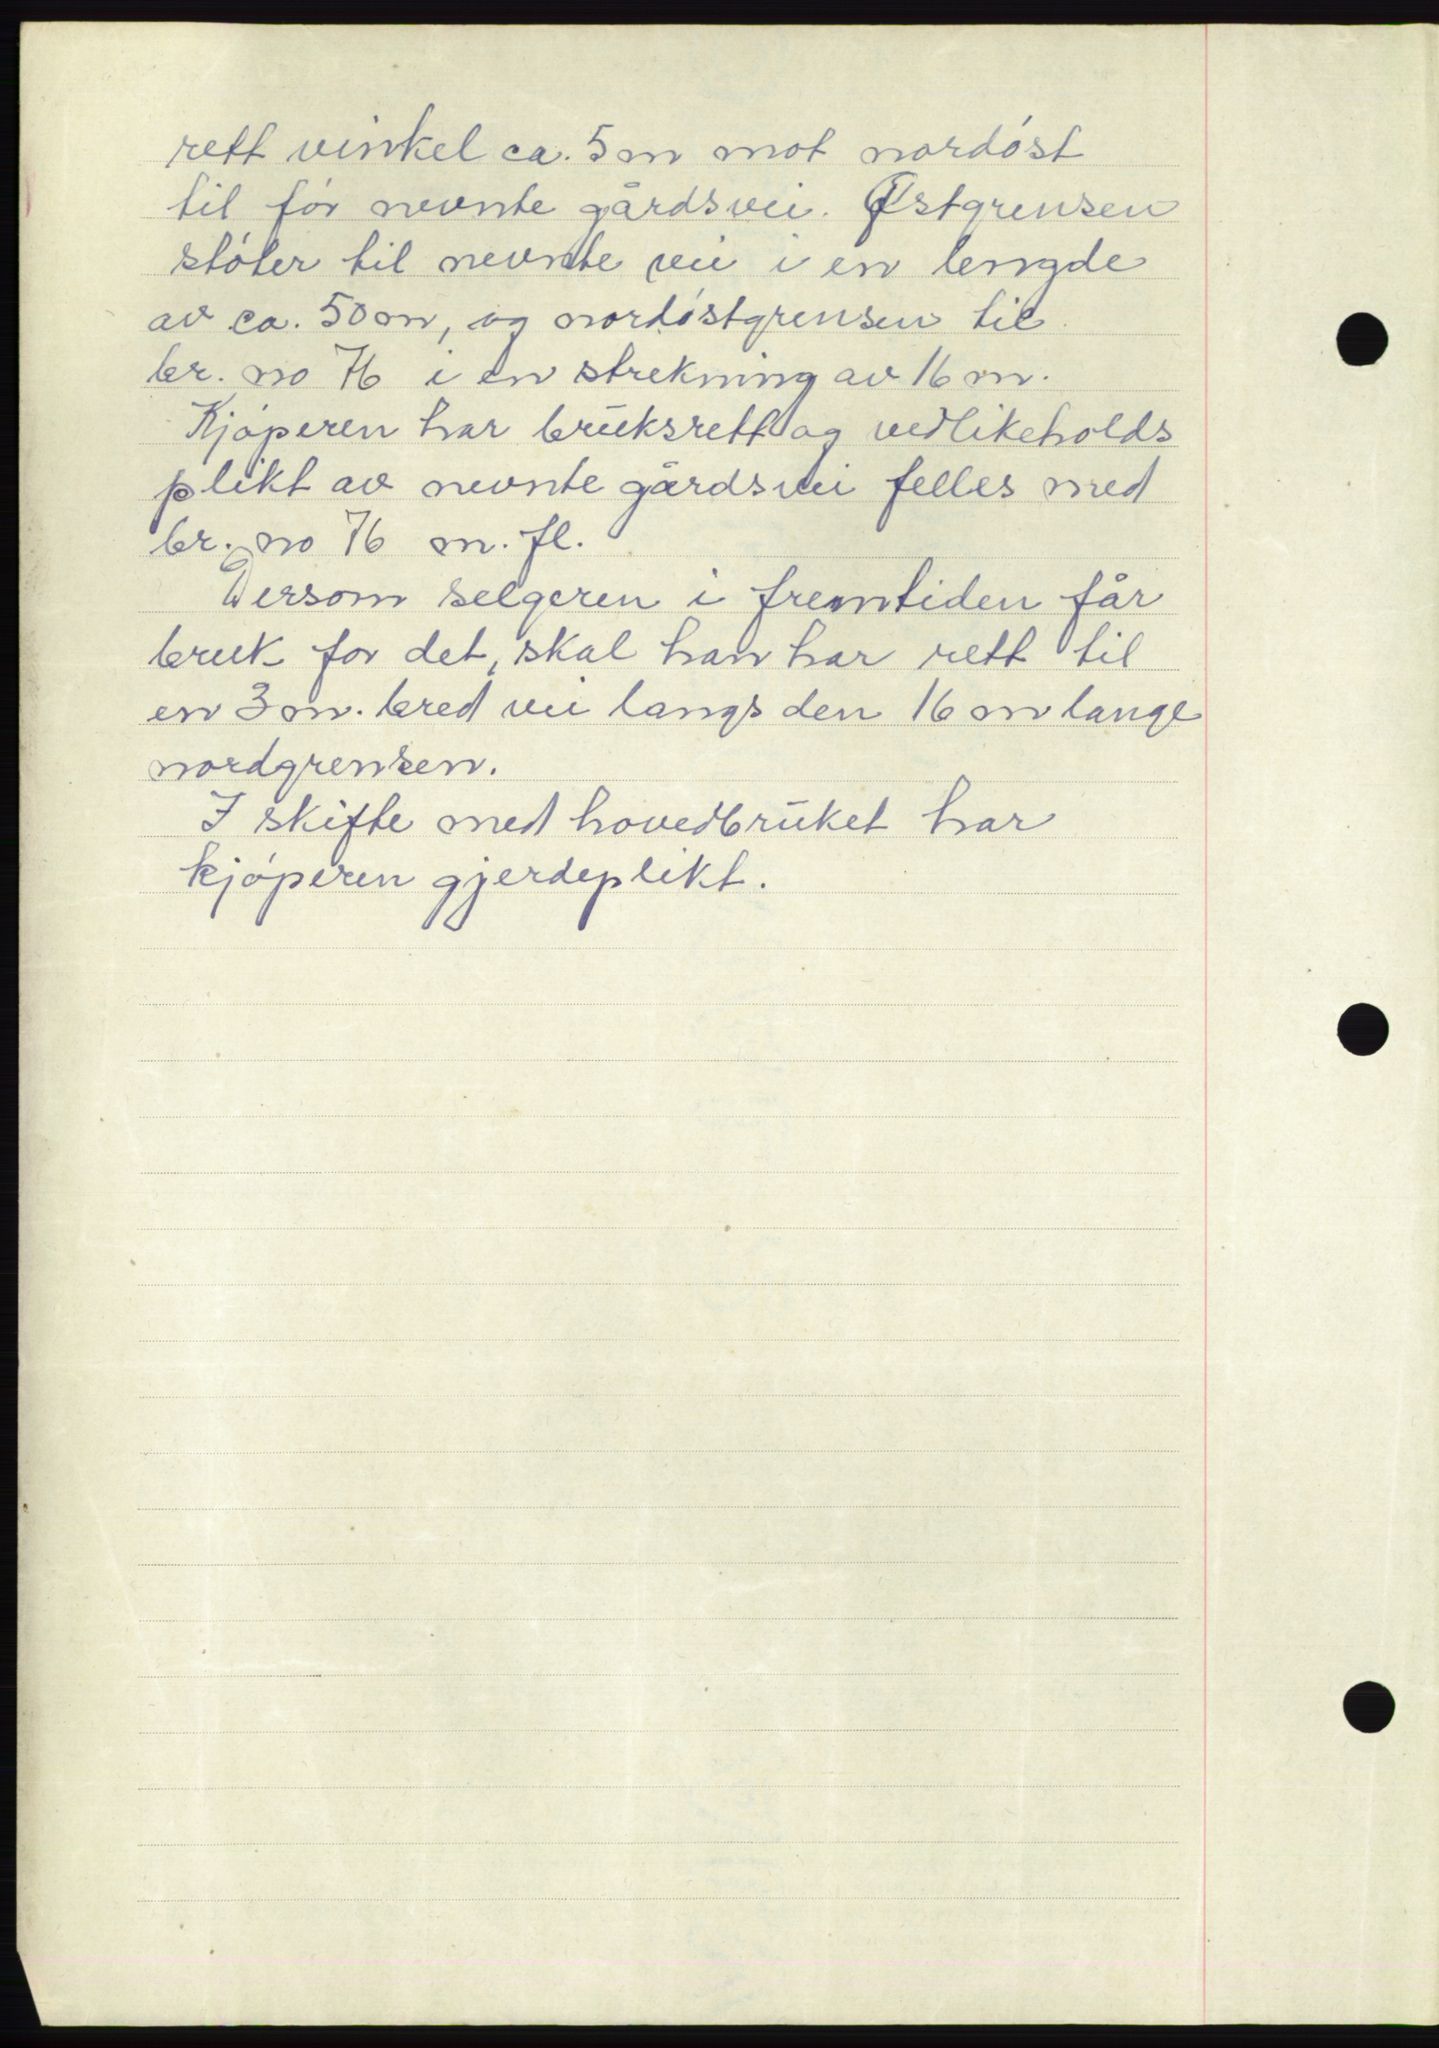 rett vinkel ca. 5 m mot nordóst
til fór nevnte gårdsvei. Østgrensen
stóter til nevnte vei i en lengde
av ca. 50 m, og nordóstgrensen til
br. no 76 i en strekning av 16 m.
Kjóperen har brūksrett og vedlikeholds
plikt av nevnte gårdsvei felles med
br. no 76 m. fl.
Dersom selgeren i fremtiden får
bruk for det, skal han har rett til
en 3 m. bred vei langs den 16 m lange
nordgrensen.
I skifte med hovedbrūket har
kjóperen gjerdeplikt.